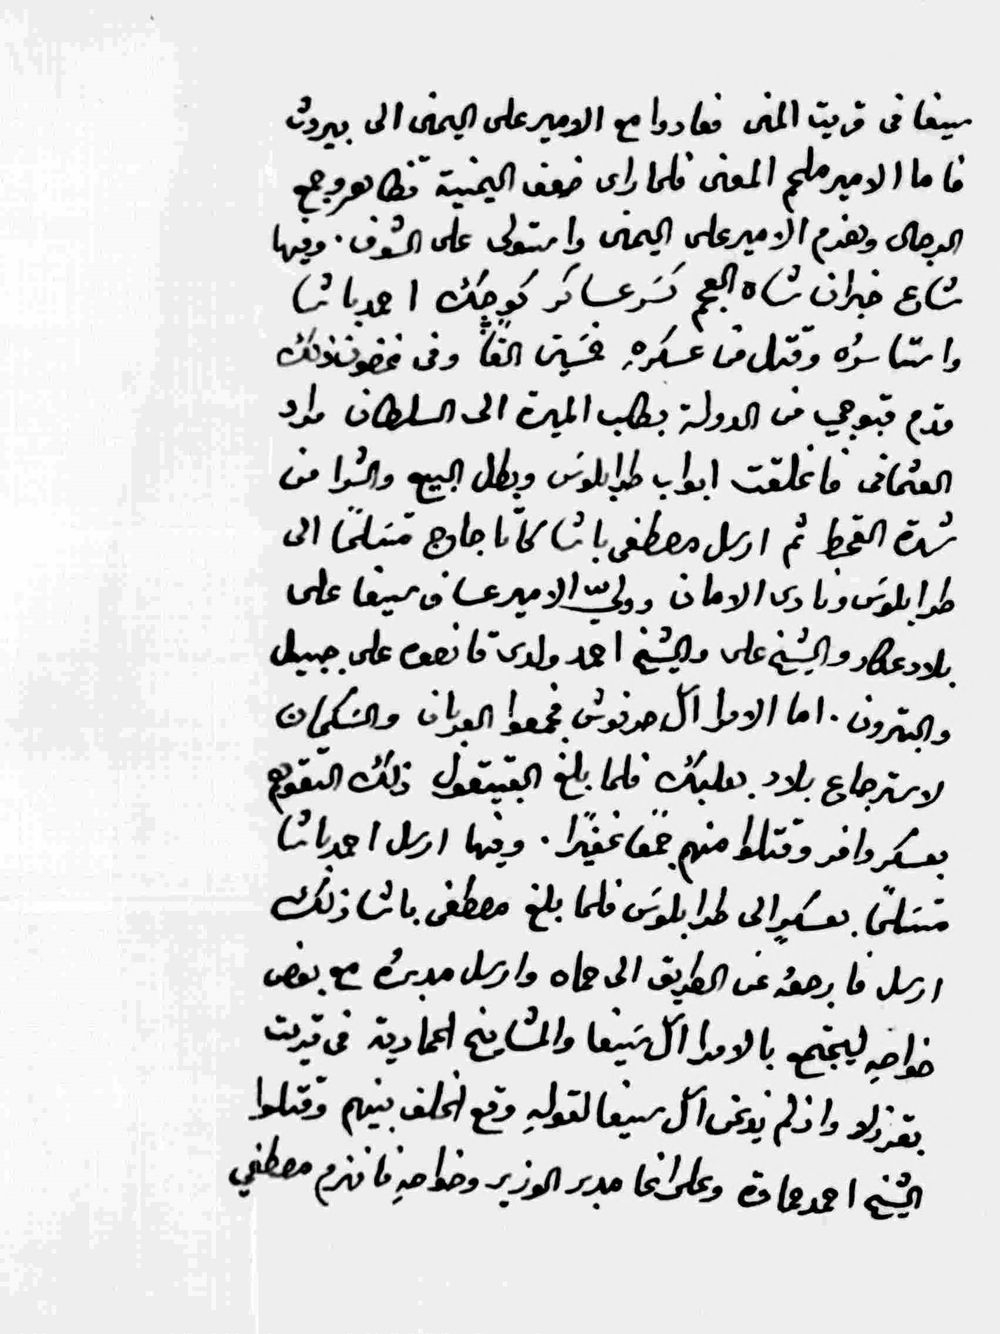 سيفا في قريت المنى فعادوا مع الامير علي اليمني الى بيروت
فاما الامير ملحم المعني فلما راى ضعف اليمنية تظاهر وجمع
الرجال وهزم الامير علي اليمني واستولى على الشوف . وفيها
شاع خبر ان شاه العجم كسر عساكر كوجك احمد باشا
واستاسره وقتل من عسكره خمسين الفًا وفي غضون ذلك
قدم قبوجي من الدولة بطلب الميرة الى السلطان مراد
العثماني فانغلقت ابواب طرابلوس وبطل البيع والشرا من
شدة القحط ثم ارسل مصطفى باشا متسلمًا الى
طرابلوس ونادى الامان وولّي الامير عساف سيفا على
بلاد عكار والشيخ علي والشيخ احمد ولدي قانصوه على جبيل
والبترون . اما الامرا آل حرفوش فجمعوا العربان والسكمان
لاسترجاع بلاد بعلبك فلما بلغ ذلك التقوهم
بعسكر وافر وقتلوا منهم جمعًا غفيرًا . وفيها ارسل احمد باشا
متسلمًا بعسكرٍ الى طرابلوس فلما بلغ مصطفى باشا ذلك
ارسل فارجعهُ عن الطريق الى حماه وارسل مدبرهُ مع بعض
خواصهِ ليجتمع بالامرا آل سيفا والمشايخ الحمادية في قريت
بقرزلا واذ لم يذعن آل سيفا لقولهِ وقع الخلف بينهم وقتلوا
الشيخ احمد حمادة وعلي اغا مدبر الوزير وخواصهِ فانهزم مصطفي